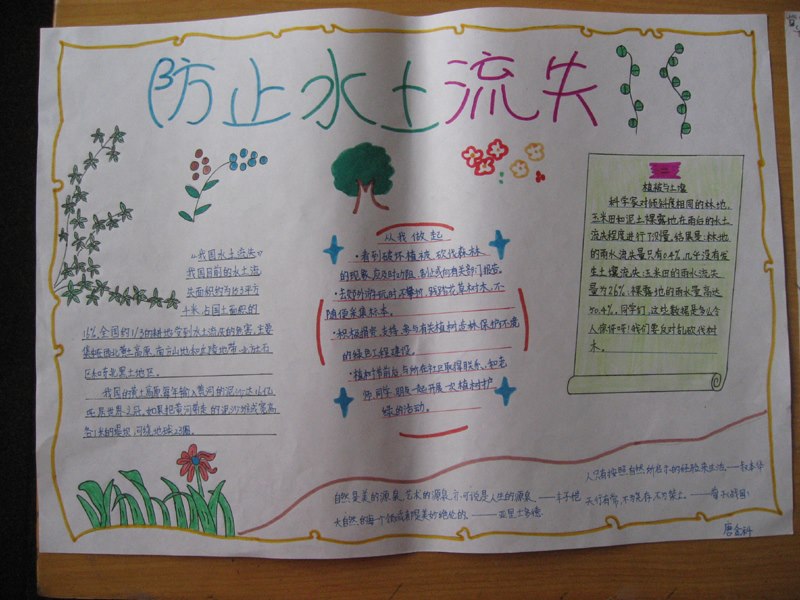 防止水土流失
《我国水土流失》
我国目前的水土流
失面积约为153万平方
千米,占国土面积的
16%,全国约1/3的耕地受到水土流失的危害,主要
集中在西北黄土高原,南方山地和丘陵地带,北方土石
区和东北黑土地区。
我国的黄土高原每年输入黄河的泥沙达16亿
吨,居世界之冠,如果把黄河带走的泥沙堆成宽高
各1米的堤坝,可绕地球23圈。
从我做起
·看到破坏植被、砍伐森林
的现象,应及时劝阻、制止或向有关部门报告。
·去郊外游玩时不攀枝,践踏花草树木,不
随便采集标本。
·积极捐劳、支持、参与有关植树造林、保护环境
的绿色工程建设。
·植树节前后与所在社区取得联系,和老
师、同学、朋友一起开展一次植树护
绿的活动。
植被与土壤
科学家对倾斜度相同的林地、
玉米田和泥土裸露地在雨后的水土
流失程度进行了测量,结果是:林地
的雨水流失量只有0.4%,几乎没有发
生土壤流失;玉米田的雨水流失
量为26%;裸露地的雨水量高达
50.4%,同学们,这些数据是多么令
人惊讶呀!我们要反对乱砍伐树
木。
人只有按照自然所启示的经验来生活。——叔本华
自然是美的源泉,艺术的源泉,亦可说是人生的源泉。——丰子恺
天行有常,不为尧存,不为桀亡。——荀水(战国)
大自然的每个领域都是美妙绝伦的。——亚里士多德
唐金科